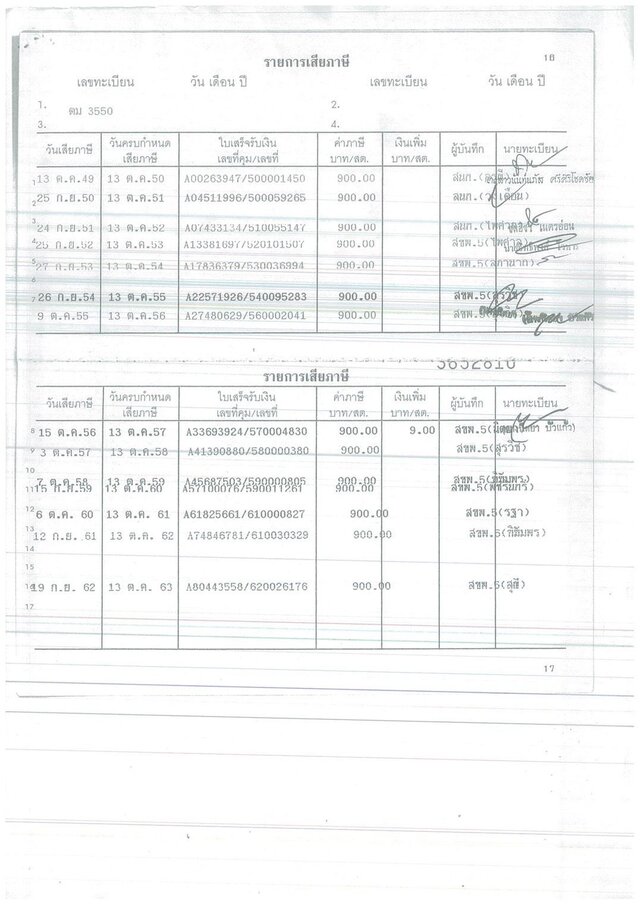 16
รายการเสียภาษี
เลขทะเบียน วัน เดือน ปี เลขทะเบียน วัน เดือน ปี
1. ตม 3550 2.
3. 4.
วันเสียภาษี วันครบกำหนดเสียภาษี ใบเสร็จรับเงิน เลขที่คุม/เลขที่ ค่าภาษี บาท/สต. เงินเพิ่ม บาท/สต. ผู้บันทึก นายทะเบียน
1 13 ต.ค.49 13 ต.ค.50 A00263947/500001450 900.00 สมก.
2 25 ก.ย.50 13 ต.ค.51 A04511996/500059265 900.00
3 24 ก.ย.51 13 ต.ค.52 A07433134/510055147 900.00
4 25 ก.ย.52 13 ต.ค.53 A13381697/520101507 900.00 สขพ.5
5 27 ก.ย.53 13 ต.ค.54 A17836379/530036994 900.00 สขพ.5
6
7 26 ก.ย.54 13 ต.ค.55 A22571926/540095283 900.00 สขพ.5
9 ต.ค.55 13 ต.ค.56 A27480629/560002041 900.00 สขพ.5
รายการเสียภาษี
วันเสียภาษี วันครบกำหนดเสียภาษี ใบเสร็จรับเงิน เลขที่คุม/เลขที่ ค่าภาษี บาท/สต. เงินเพิ่ม บาท/สต. ผู้บันทึก นายทะเบียน
8 15 ต.ค.56 13 ต.ค.57 A33693924/570004830 900.00 9.00 สขพ.5
9 3 ต.ค.57 13 ต.ค.58 A41390880/580000380 900.00 สขพ.5(สุรวิช)
10 7 ต.ค.58 13 ต.ค.59 A45687503/590000805 900.00 สขพ.5
11 15 ก.ย.59 13 ต.ค.60 A57100076/590011261 900.00 สขพ.5
12 6 ต.ค. 60 13 ต.ค. 61 A61825661/610000827 900.00 สขพ.5(รฐา)
13 12 ก.ย. 61 13 ต.ค. 62 A74846781/610030329 900.00 สขพ.5(ทิฆัมพร)
14
15
16 19 ก.ย. 62 13 ต.ค. 63 A80443558/620026176 900.00 สขพ.5(สุธี)
17
17